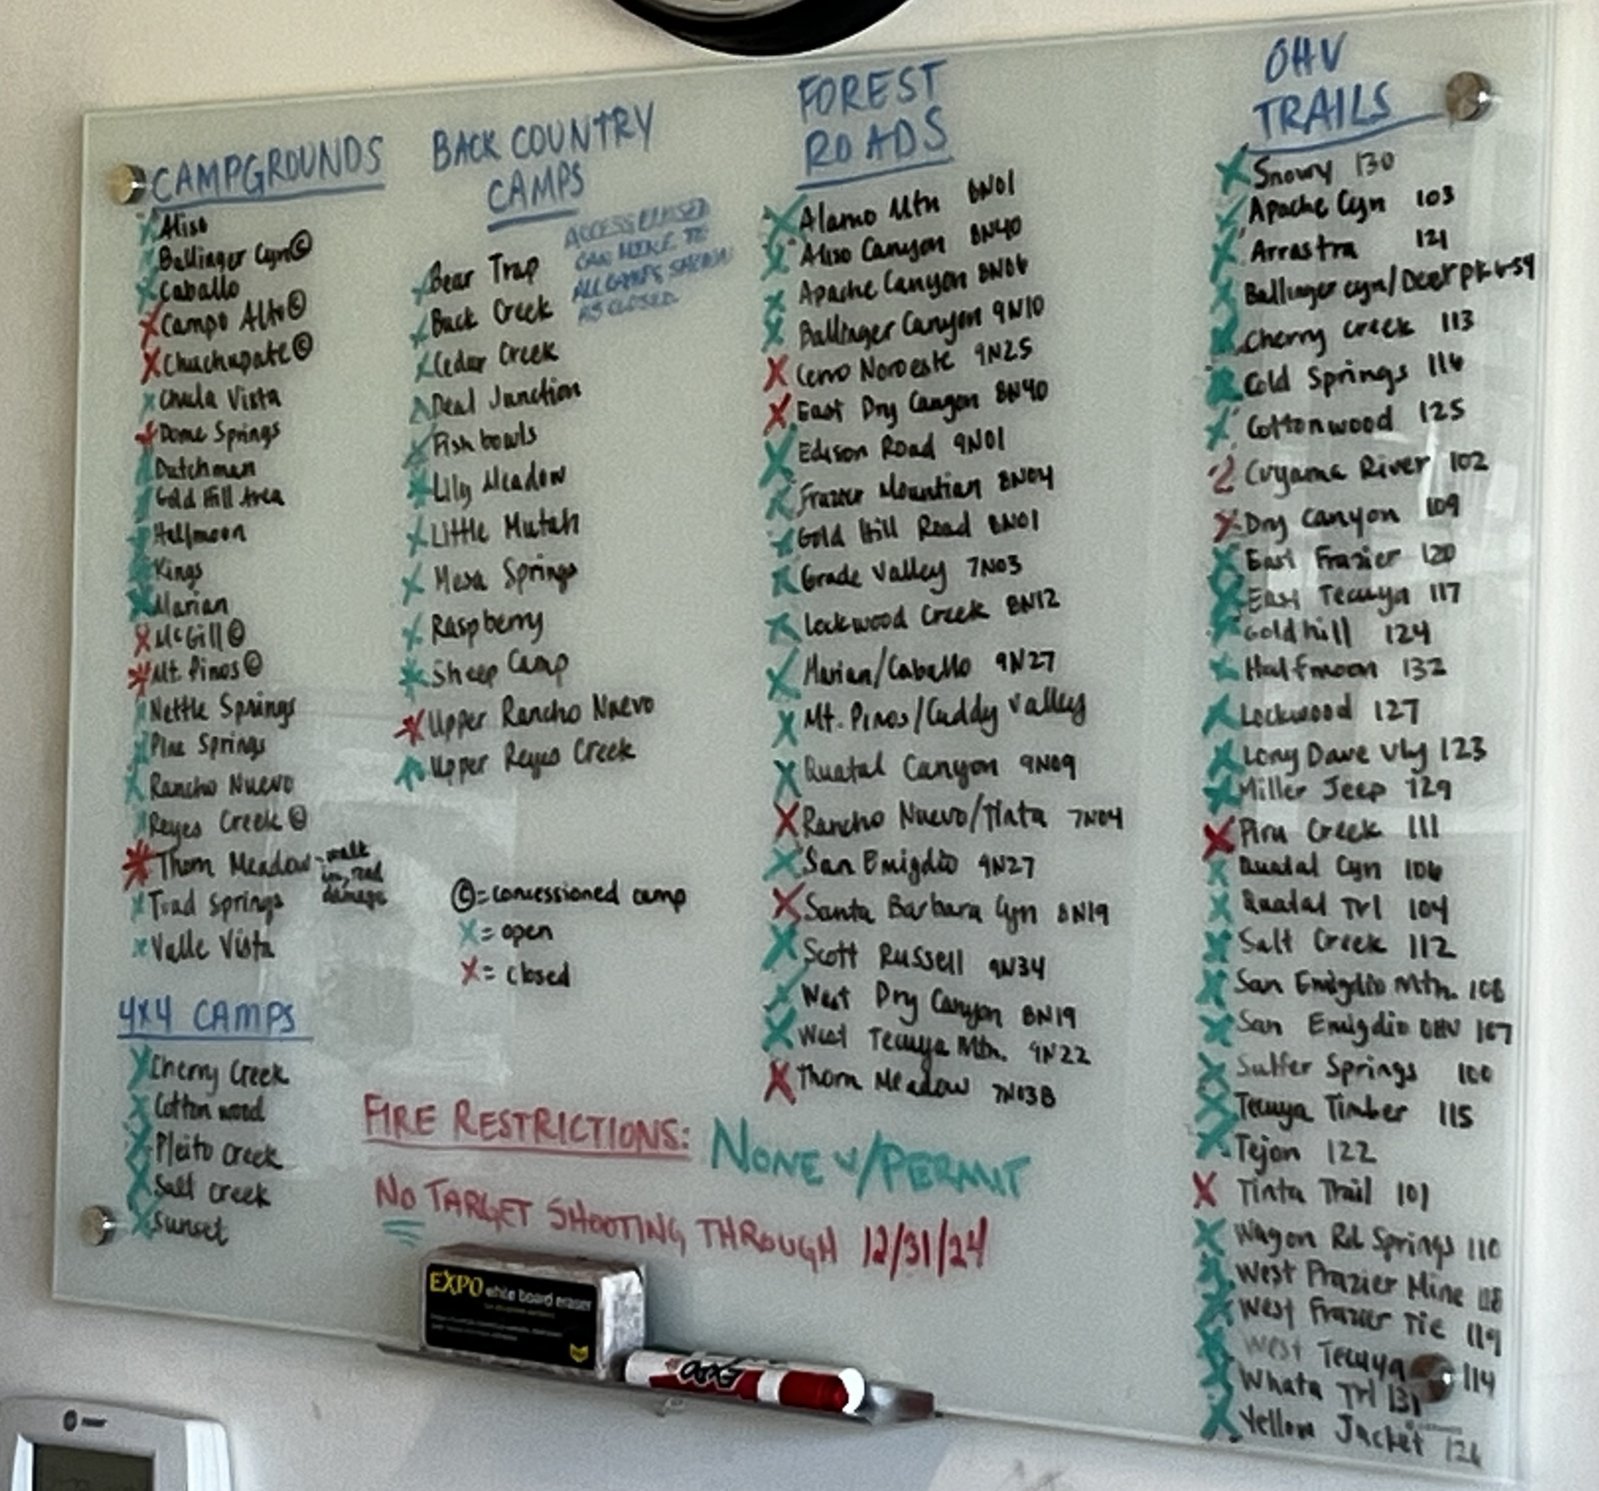 CAMPGROUNDS
X Aliso
X Ballinger Cyn ©
X Caballo
X Campo Alto ©
X Chuchupate ©
X Chula Vista
X Dome Springs
X Dutchman
X Gold Hill Area
X Halfmoon
X Kings
X Marian
X McGill ©
X Mt. Pinos ©
X Nettle Springs
X Pine Springs
X Rancho Nuevo
X Reyes Creek ©
X Thorn Meadow - walk in, road damage
X Toad Springs
X Valle Vista
4x4 CAMPS
X Cherry Creek
X Cottonwood
X Pleito Creek
X Salt Creek
X Sunset
BACK COUNTRY
CAMPS
ACCESS CLOSED
CAN HIKE TO
ALL CAMPS SHOWN
AS CLOSED
X Bear Trap
X Buck Creek
X Cedar Creek
X Deal Junction
X Fishbowls
X Lily Meadow
X Little Mutah
X Mesa Springs
X Raspberry
X Sheep Camp
X Upper Rancho Nuevo
X Upper Reyes Creek
© = concessioned camp
X = open
X = closed
FOREST
ROADS
X Alamo Mtn 8N01
X Aliso Canyon 8N40
X Apache Canyon 8N06
X Ballinger Canyon 9N10
X Cerro Noroeste 9N25
X East Dry Canyon 8N40
X Edison Road 9N01
X Frazier Mountian 8N04
X Gold Hill Road 8N01
X Grade Valley 7N03
X Lockwood Creek 8N12
X Marian/Caballo 9N27
X Mt. Pinos/Cuddy Valley
X Quatal Canyon 9N09
X Rancho Nuevo/Tinta 7N04
X San Emigdio 9N27
X Santa Barbara Cyn 8N19
X Scott Russell 9N34
X West Dry Canyon 8N19
X West Tecuya Mtn. 9N22
X Thorn Meadow 7N03B
OHV
TRAILS
X Snowy 130
X Apache Cyn 103
X Arrastra 121
X Ballinger Cyn/Deer Pk
X Cherry Creek 113
X Cold Springs 116
X Cottonwood 125
Cuyama River 102
X Dry Canyon 109
X East Frazier 120
X East Tecuya 117
X Gold hill 124
X Halfmoon 132
X Lockwood 127
X Long Dave Vly 123
X Miller Jeep 129
X Piru Creek 111
X Quatal Cyn 106
X Quatal Trl 104
X Salt Creek 112
X San Emigdio Mtn. 108
X San Emigdio OHV 107
X Sulfer Springs 100
X Tecuya Timber 115
X Tejon 122
X Tinta Trail 101
X Wagon Rd Springs 110
X West Frazier Mine 118
X West Frazier Tie 119
X West Tecuya 114
X Whata Trl 131
X Yellow Jacket 126
FIRE RESTRICTIONS: NONE w/PERMIT
NO TARGET SHOOTING THROUGH 12/31/24
EXPO white board eraser